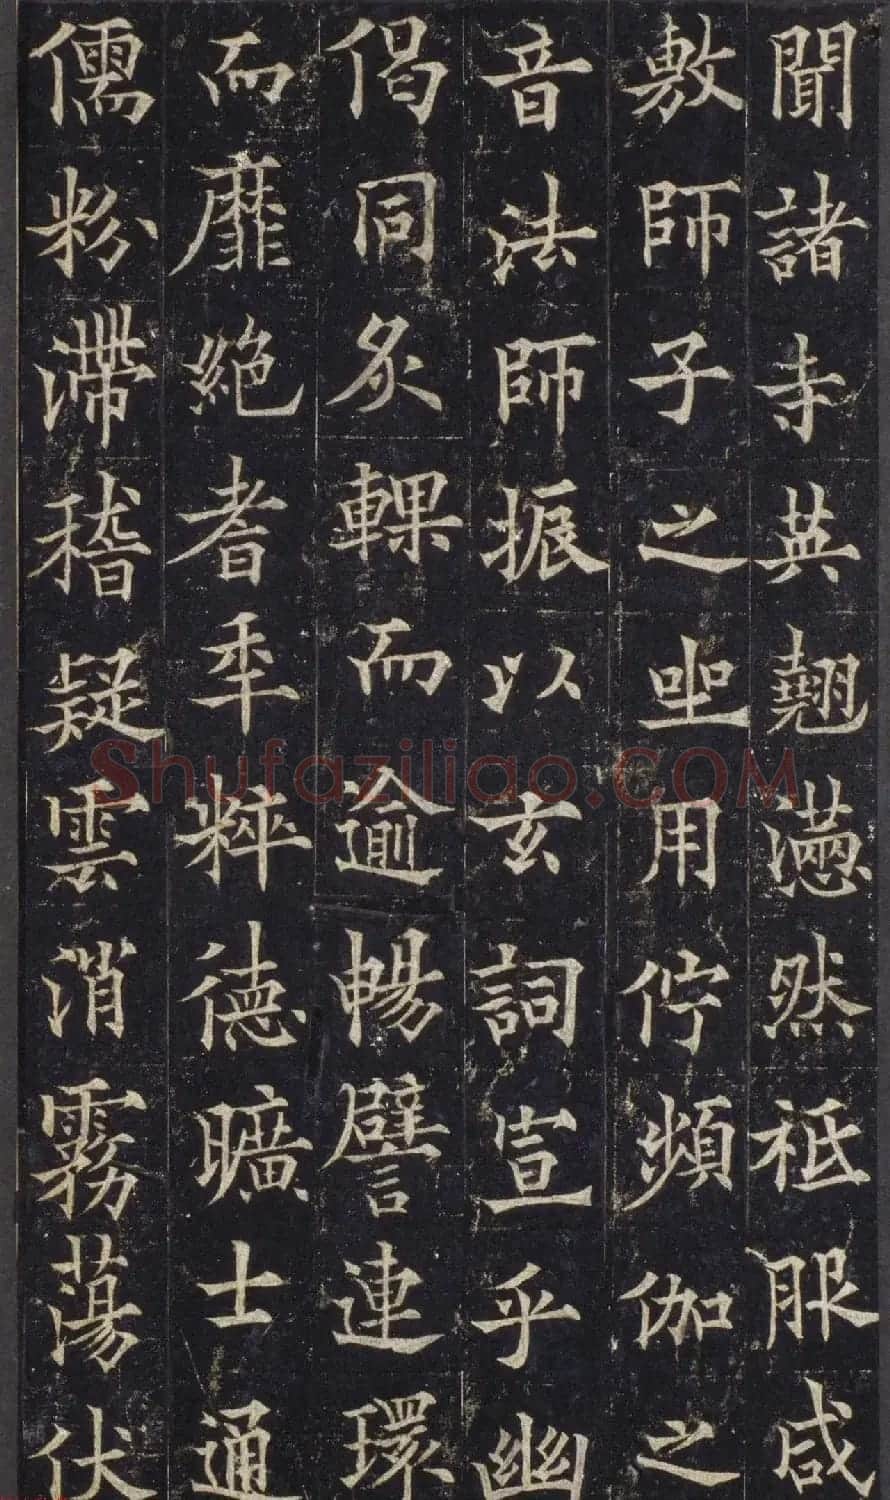 聞諸寺英翹懣然祇服咸
敷師子之坐用佇頻伽之
音法師振以玄詞宣乎幽
偈同炙輠而逾暢譬連環
而靡絕耆年粹德曠士通
儒粉滯稽疑雲消霧蕩伏
Shufaziliao.COM